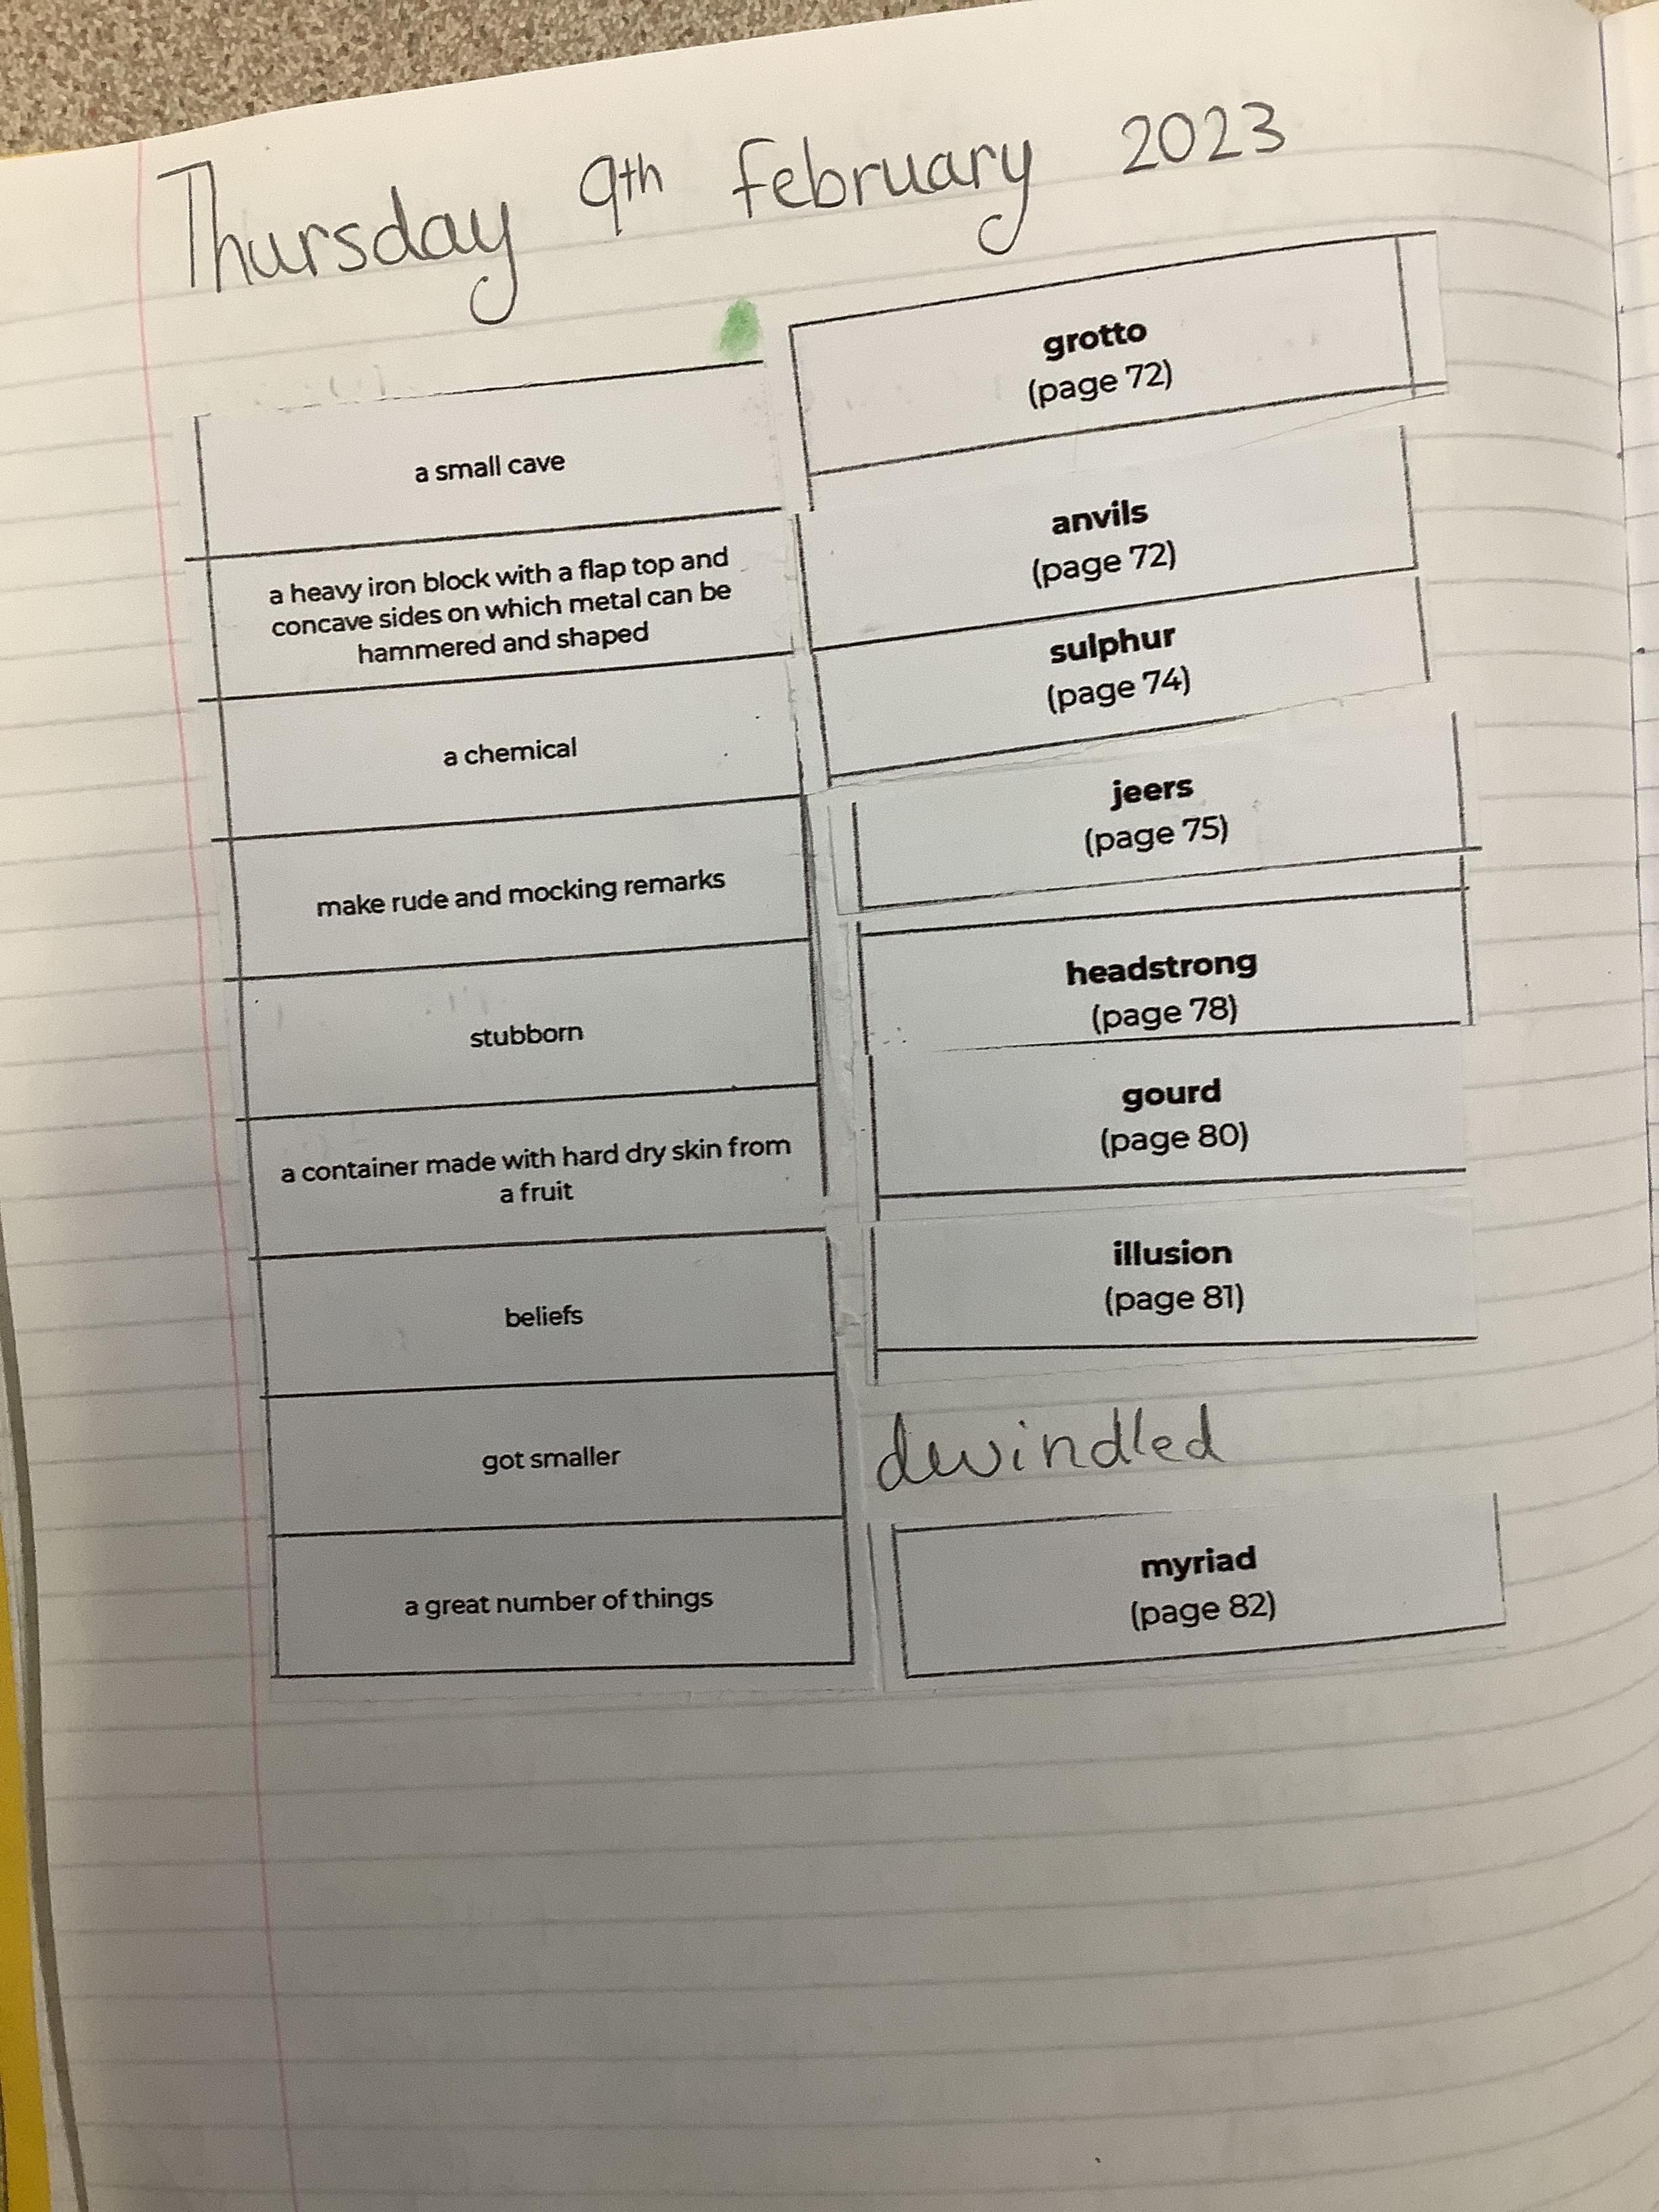 Thursday 9th february 2023
grotto
(page 72)
a small cave
anvils
(page 72)
a heavy iron block with a flap top and
concave sides on which metal can be
hammered and shaped
sulphur
(page 74)
a chemical
jeers
(page 75)
make rude and mocking remarks
headstrong
(page 78)
stubborn
gourd
(page 80)
a container made with hard dry skin from
a fruit
illusion
(page 81)
beliefs
dwindled
got smaller
myriad
(page 82)
a great number of things